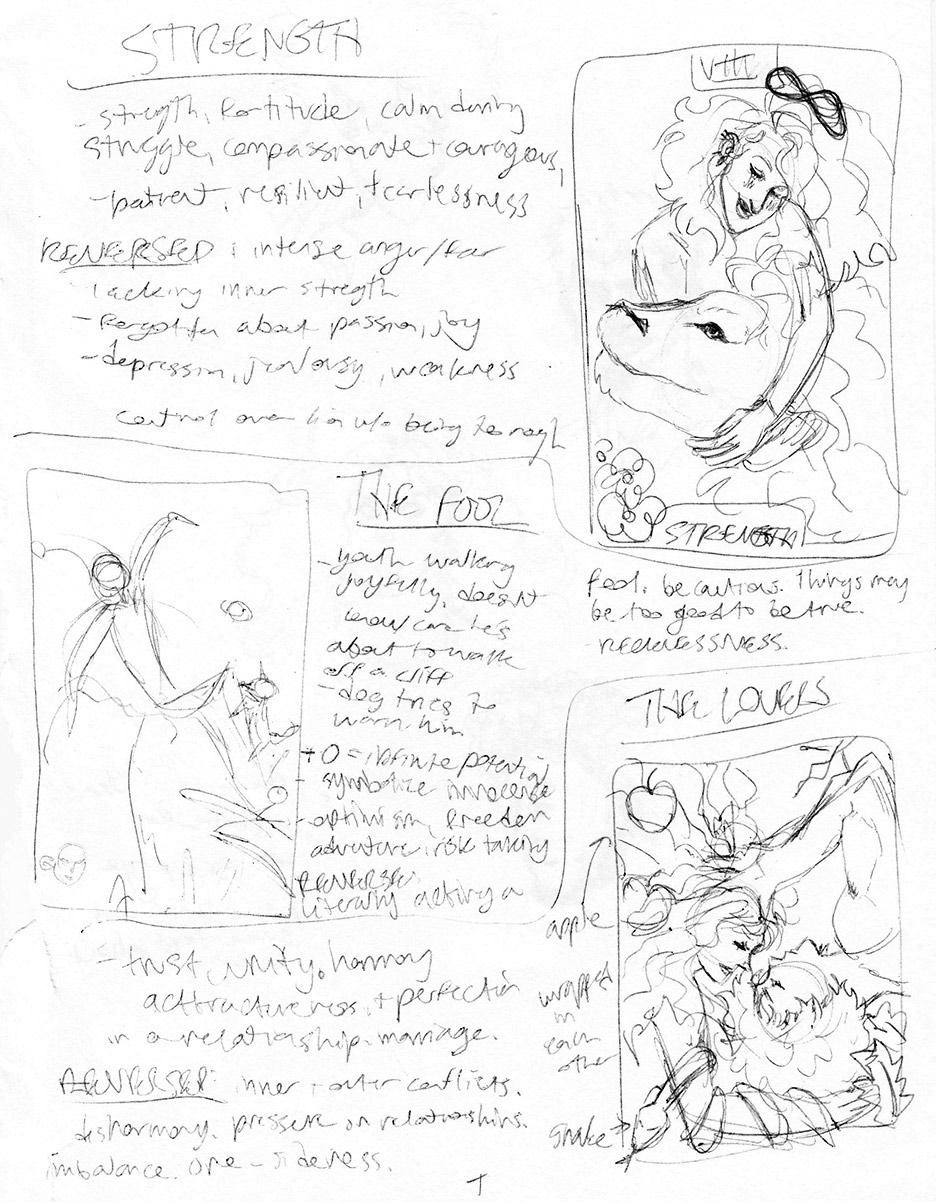 STRENGTH
- strength, fortitude, calm during
struggle, compassionate + courageous,
- patient, resilient, + fearlessness
REVERSED : intense anger/fear
lacking inner stregth
- forgotten about passion, joy
- depression, jealousy, weakness
control over lion w/o being too rough
VIII
STRENGTH
THE FOOL
- youth walking
joyfully, doesn't
know/care he's
about to walk
off a cliff
- dog tries to
warn him
+ 0 = infinite potential
- symbolize innocence
- optimism, freedom
adventure, risk taking
REVERSE:
literally acting a
fool. be cautious. things may
be too good to be true.
- RECKLESSNESS.
THE LOVERS
apple
wrapped
in
each
other
snake
- trust, unity, harmony
attractiveness, + perfection
in a relationship. marriage.
REVERSED: inner + outer conflicts.
disharmony. pressure on relationships.
imbalance. one-sideness.